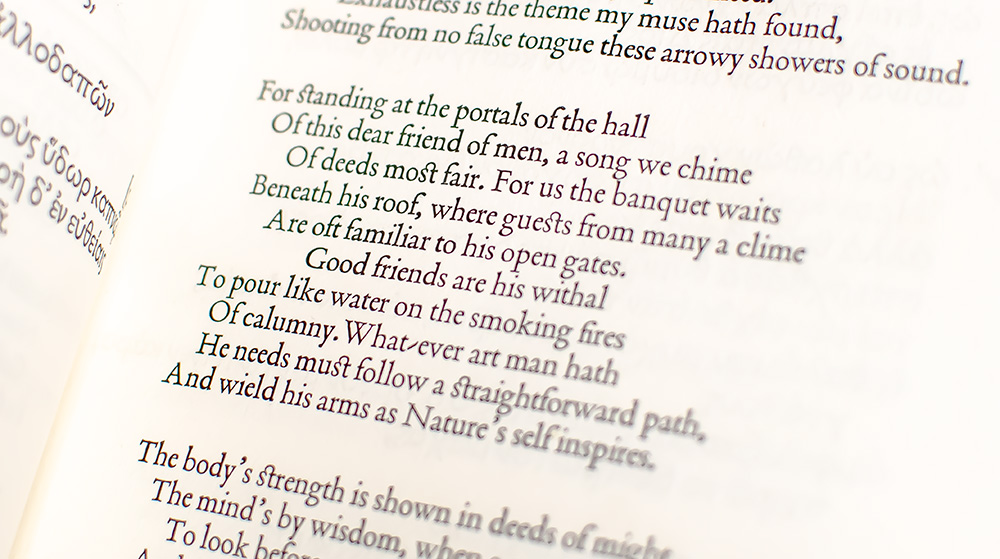 ἀλλοδαπῶν
οὺς ὕδωρ καπνῷ
ρὴ δ' ἐν εὐθείαις
is the theme my muse hath found,
Shooting from no false tongue these arrowy showers of sound.
For standing at the portals of the hall
Of this dear friend of men, a song we chime
Of deeds most fair. For us the banquet waits
Beneath his roof, where guests from many a clime
Are oft familiar to his open gates.
Good friends are his withal
To pour like water on the smoking fires
Of calumny. What-ever art man hath
He needs must follow a straightforward path,
And wield his arms as Nature's self inspires.
The body's strength is shown in deeds of might,
The mind's by wisdom, when
To look before